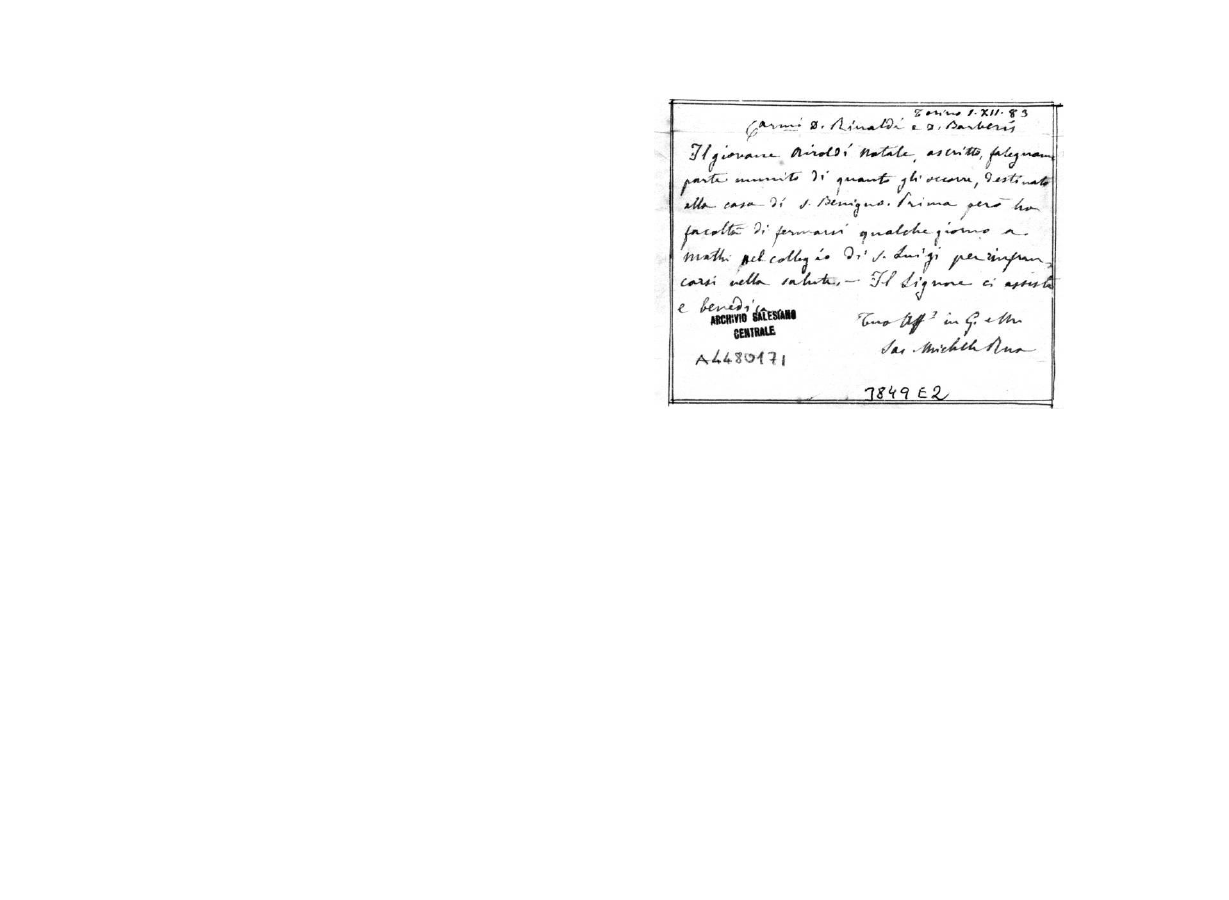 Torino 1-XII-83
Carmi D. Rinaldi e D. Barberis
Il giovane Airoldi Natale, ascritto, falegname
parte munito di quanto gli occorre, destinato
alla casa di S. Benigno. Prima però ha
facoltà di fermarsi qualche giorno a
Mathi nel collegio di S. Luigi per rinfran-
carsi nella salute. — Il Signore ci assista
e benedica
ARCHIVIO SALESIANO
CENTRALE
Tuo Aff in G. e M
Sac. Michele Rua
A4480171
7849 E2